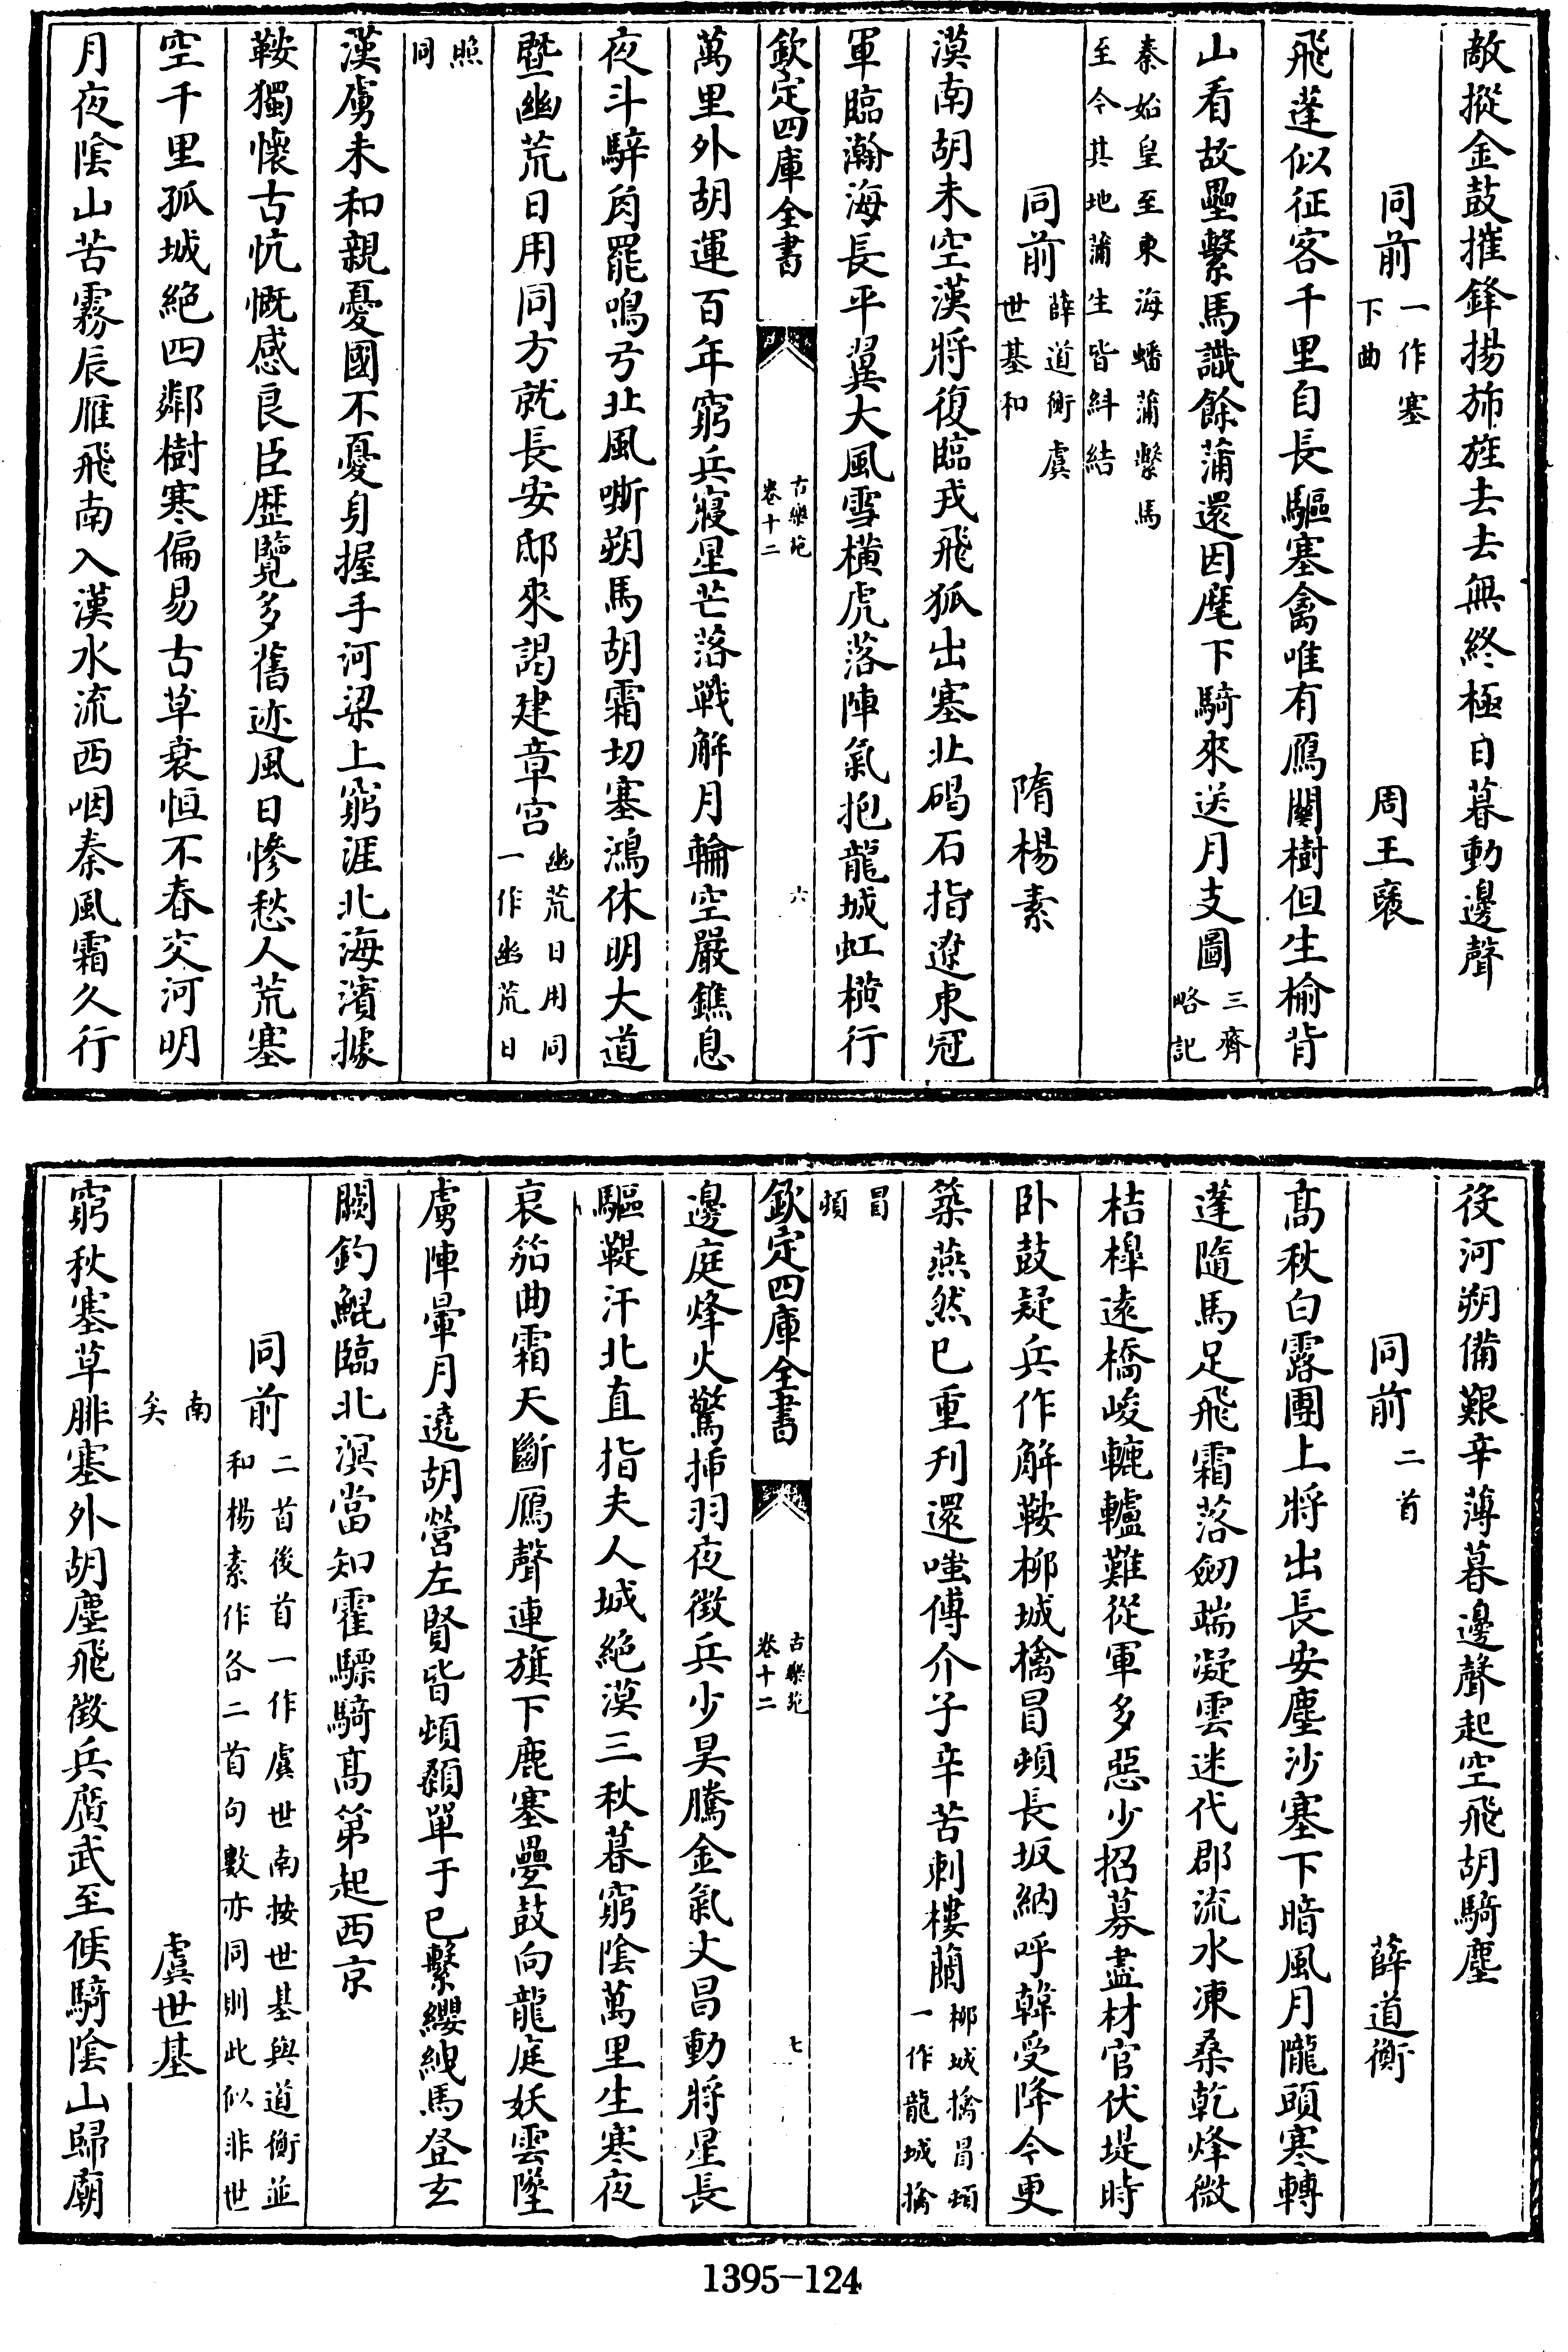 敵摐金鼓摧鋒揚斾旌去去無終極日暮動邊聲
同前一作塞下曲 周王襃
飛蓬似征客千里自長驅塞禽唯有鴈關樹但生榆背
山看故壘繫馬識餘蒲還因麾下騎來送月支圖三齊略記
秦始皇至東海蟠蒲繫馬至今其地蒲生皆紏結
同前薛道衡虞世基和 隋楊素
漠南胡未空漢將復臨戎飛狐出塞北碣石指遼東冠
軍臨瀚海長平翼大風雪橫虎落陣氣抱龍城虹橫行
欽定四庫全書 古樂苑卷十二 六
萬里外胡運百年窮兵寢星芒落戰解月輪空嚴鐎息
夜斗騂角罷鳴弓北風嘶朔馬胡霜切塞鴻休明大道
曁幽荒日用同方就長安邸來謁建章宫幽荒日用同一作幽荒日
照同
漢虜未和親憂國不憂身握手河梁上窮涯北海濱據
鞍獨懷古忼慨感良臣歴覽多舊迹風日慘愁人荒塞
空千里孤城絶四鄰樹寒偏易古草衰恒不春交河明
月夜陰山苦霧辰雁飛南入漢水流西咽秦風霜久行
役河朔備艱辛薄暮邊聲起空飛胡騎塵
同前二首 薛道衡
髙秋白露團上將出長安塵沙塞下暗風月隴頭寒轉
蓬隨馬足飛霜落劒端凝雲迷代郡流水凍桑乾烽微
桔橰遠橋峻轆轤難從軍多惡少招募盡材官伏堤時
卧鼓疑兵作解鞍柳城擒冒頓長坂納呼韓受降今更
築燕然已重刋還嗤傅介子辛苦刺樓蘭柳城擒冒頓一作龍城擒
冒頓
欽定四庫全書 古樂苑卷十二 七
邊庭烽火驚插羽夜徴兵少昊騰金氣文昌動將星長
驅鞮汗北直指夫人城絶漠三秋暮窮陰萬里生寒夜
哀笳曲霜天斷鴈聲連旗下鹿塞疊鼓向龍庭妖雲墜
虜陣暈月遶胡營左賢皆頓顙單于已繫纓絏馬登玄
闕釣鯤臨北溟當知霍驃騎髙第起西京
同前二首後首一作虞世南按世基與道衡並和楊素作各二首句數亦同則此似非世
南矣 虞世基
窮秋塞草腓塞外胡塵飛徴兵廣武至候騎陰山歸廟
1395-124